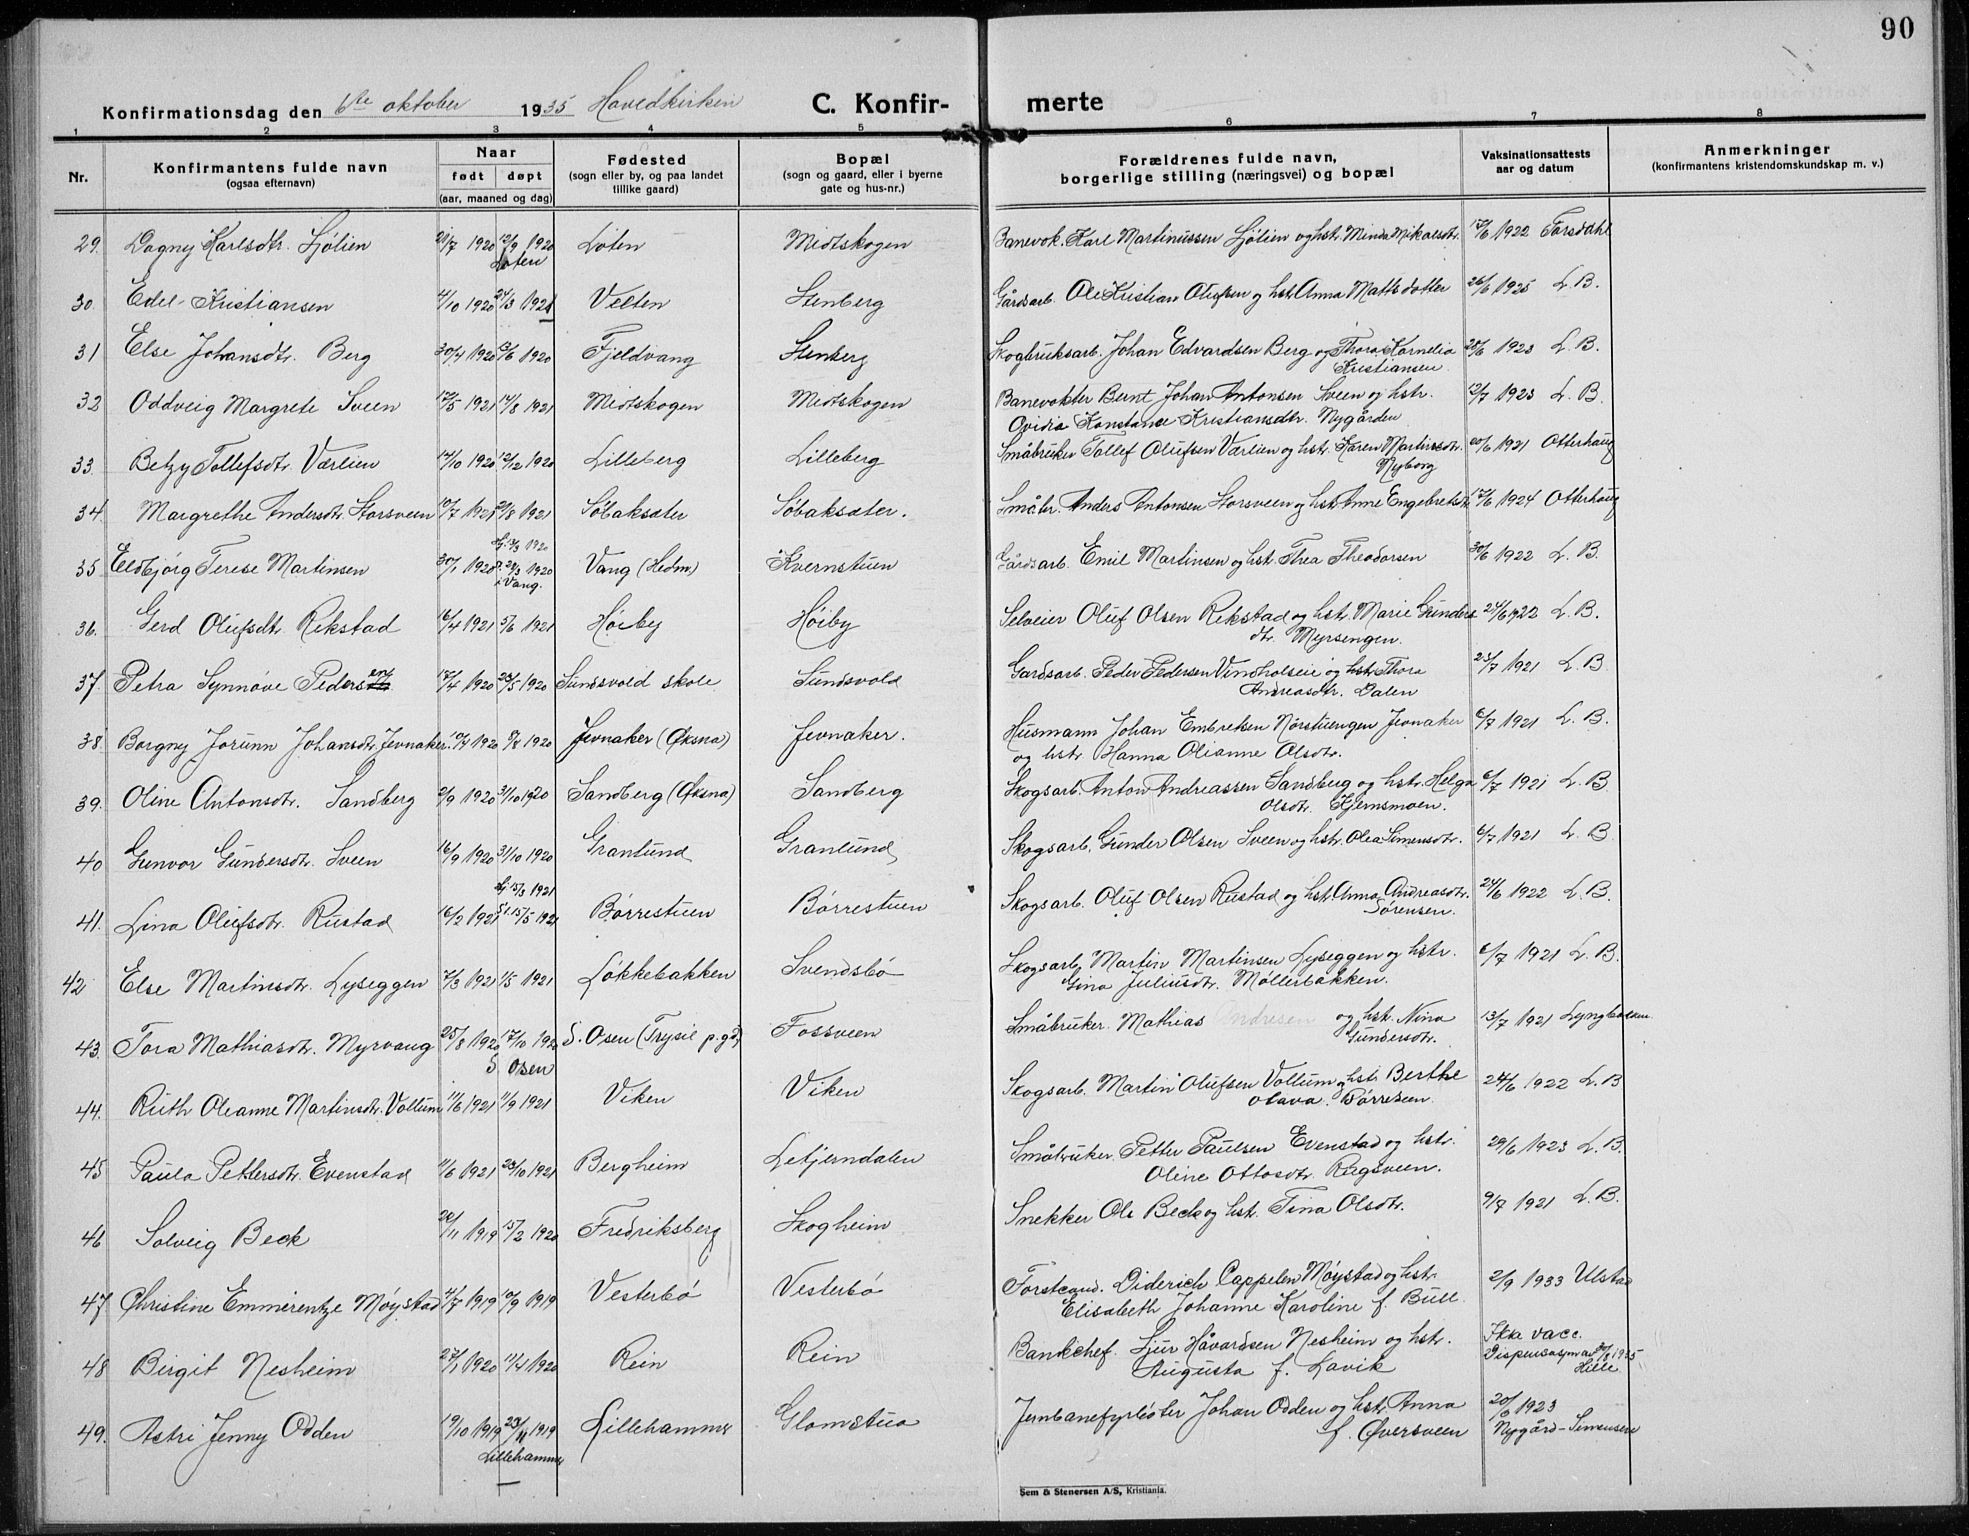 90
Konfirmationsdag den 6te oktober 1935 Hovedkirken C. Konfir- merte
1 2 3 4 5 6 7 8
Nr. Konfirmantens fulde navn (ogsaa efternavn) Naar født døpt (aar, maaned og dag) Fødested (sogn eller by, og paa landet tillike gaard) Bopæl (sogn og gaard, eller i byerne gate og hus-nr.) Forældrenes fulde navn, borgerlige stilling (næringsvei) og bopæl Vaksinationsattests aar og datum Anmerkninger (konfirmantens kristendomskundskap m. v.)
29. Dagny Karlsdtr. Sjølien 20/7 1920 12/9 1920 Løten Løten Midtskogen Banevok. Karl Martinussen Sjølien og hst. Minda Mikalsdtr. 17/6 1922 Torsdahl
30. Edel Kristiansen 4/10 1920 24/3 1921 Velten Stenberg Gårdsarb. Ole Kristian Olufsen og hst. Anna Mattsdotter 26/6 1925 L. B.
31 Else Johansdtr. Berg 30/4 1920 13/6 1920 Fjeldvang Stenberg Skogbruksarb. Johan Edvardsen Berg og Thora Kornelia Kristiansen 28/6 1923 L. B.
32 Oddveig Margrete Sveen 17/5 1921 14/8 1921 Midtskogen Midtskogen Banevokter Bernt Johan Antonsen Sveen og hstr. Ovidia Konstance Kristiansdtr. Nygården 12/7 1923 L. B.
33. Betzy Tollefsdtr. Værlien 14/10 1920 12/12 1920 Lilleberg Lilleberg Småbruker Tollef Olufsen Værlien og hst. Karen Martinsdtr. Nyborg 20/6 1921 Otterhaug
34. Margrethe Andersdtr. Storsveen 10/7 1921 21/8 1921 Søbaksæter Søbaksæter. Småbr. Anders Antonsen Storsveen og hst. Anne Engebretsdtr. 17/6 1924 Otterhaug
35 Eldbjørg Terese Martinsen 30/1 1920 Hj. 13/3 1920 28/3 1920 i Vang. Vang (Hedm) Kvernstuen Gårdsarb. Emil Martinsen og hst. Thea Theodorsen 30/6 1922 L. B.
36. Gerd Olufsdtr. Rekstad 16/4 1921 5/6 1921 Høiby Høiby Selveier Oluf Olsen Rekstad og hst. Marie Gunders dtr. Myrsengen. 24/6 1922 L. B.
37. Petra Synnøve Pedersdtr. 17/4 1920 23/5 1920 Sundsvold skole Sundsvold Gardsarb. Peder Pedersen Vindholseie og hst. Thora Andreasdtr. Dalen 23/7 1921 L. B.
38. Borgny Jorunn Johansdtr. Jevnaker. 10/4 1920 8/8 1920 Jevnaker (Øksna) Jevnaker. Husmann Johan Embretsen Nørstuengen Jevnaker og hst. Hanna Olianne Olsdtr. 6/7 1921 L. B.
39. Oline Antonsdtr. Sandberg 2/9 1920 31/10 1920 Sandberg (Øksna) Sandberg Skogsarb. Anton Andreassen Sandberg og hst. Helga Olsdtr. Kjernsmoen. 6/7 1921 L. B
40 Gunvor Gundersdtr. Sveen 16/9 1920 31/10 1920 Granlund Granlund Skogsarb. Gunder Olsen Sveen og hst. Olea Simensdtr. 6/7 1921 L. B
41. Lina Olufsdtr. Rustad 16/2 1921 Hj 13/3 1921 St. 15/5 1921 Børrestuen Børrestuen Skogsarb. Oluf Olsen Rustad og hst. Anna Andreasdtr. Sørensen. 24/6 1922 L. B.
42 Else Martinsdtr. Lyseggen 7/3 1921 1/5 1921 Løkkebakken Svendsbø Skogsarb. Martin Martinsen Lyseggen og hstr. Gina Juliusdtr. Møllerbakken. 6/7 1921 L. B.
43. Tora Mathiasdtr. Myrvang 25/8 1920 17/10 1920 S. Osen S. Osen (Trysil p.gd) Fossveen Småbruker. Mathias Andresen og hst. Nina Gundersdtr. 13/7 1921
44. Ruth Oleanne Martinsdtr. Vollum 11/6 1921 11/9 1921 Viken Viken Skogsarb. Martin Olufsen Vollum og hst. Berthe Olava Børresen. 24/6 1922 L. B
45 Paula Pettersdtr. Evenstad 11/6 1921 23/10 1921 Bergheim Letjerndalen Småbruker. Petter Paulsen Evenstad og hstr. Oline Ottosdtr. Rugsveen. 29/6 1923 L. B.
46 Solveig Beck 20/11 1919 15/2 1920 Fredriksberg Skogheim Snekker Ole Beck og hst. Tina Olsdtr. 9/7 1921 L. B.
47 Christine Emmerentze Møystad 4/7 1919 7/9 1919 Vesterbø Vesterbø Forstcand. Diderich Cappelen Møystad og hst. Elisabeth Johanne Karoline f. Bull. 2/9 1933 Ulstad
48 Birgit Nesheim 27/1 1920 11/4 1920 Rein Rein Bankchef. Sjur Håvardsen Nesheim og hstr. Augusta f. Lavik Ikke vacc. 1935 Hille
49. Astri Jenny Odden 19/10 1919 23/11 1919 Lillehammer Lillehammer Glomstua Jernbanefyrbøter Johan Odden og hst. Anna f. Øversveen 20/6 1923 Nygård-Simensen
Sem & Stenersen A/S, Kristiania.